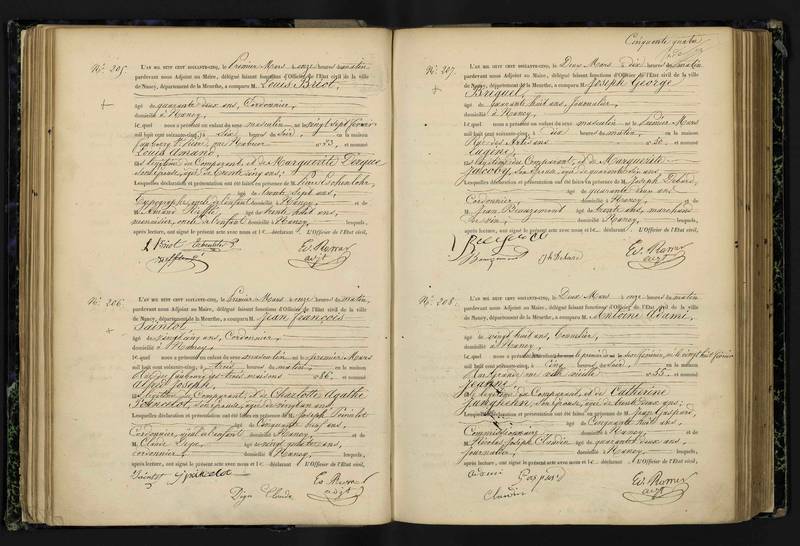 N° 205.
L'AN MIL HUIT CENT SOIXANTE-CINQ, le Premier Mars à onze heures du matin
pardevant nous Adjoint au Maire, délégué faisant fonctions d'Officier de l'Etat civil de la ville
de Nancy, département de la Meurthe, a comparu M. Louis
âgé de quarante deux ans, Cordonnier,
domicilié à Nancy,
lequel nous a présenté un enfant du sexe masculin né le vingt sept février
mil huit cent soixante-cinq, à six heures du soir, en la maison
faubourg St Pierre n° 23, et nommé
Louis Amand,
légitime du Comparant, et de Marguerite
son épouse, âgée de trente cinq ans;
Lesquelles déclaration et présentation ont été faites en présence de M. Pierre
âgé de trente sept ans,
Typographe, oncle de l'enfant domicilié à Nancy, et de
M. Amand âgé de trente huit ans,
menuisier, oncle de l'enfant domicilié à Nancy, lesquels,
après lecture, ont signé le présent acte avec nous et le déclarant. L'Officier de l'Etat civil,
adjt
N° 206.
L'AN MIL HUIT CENT SOIXANTE-CINQ, le Premier Mars à onze heures du matin,
pardevant nous Adjoint au Maire, délégué faisant fonctions d'Officier de l'Etat civil de la ville
de Nancy, département de la Meurthe, a comparu M. Jean François
Saintot
âgé de vingt cinq ans, Cordonnier,
domicilié à Nancy,
lequel nous a présenté un enfant du sexe masculin né le premier Mars
mil huit cent soixante-cinq, à trois heures du matin, en la maison
Rue du faubourg des trois maisons n° 86, et nommé
Albert Joseph,
légitime du Comparant, et de Charlotte Agathe
son épouse, âgée de vingt un ans;
Lesquelles déclaration et présentation ont été faites en présence de M. Joseph
âgé de Cinquante neuf ans,
Cordonnier, ayeul de l'enfant domicilié à Nancy, et de
M. Claude âgé de vingt quatre ans,
cordonnier, domicilié à Nancy, lesquels,
après lecture, ont signé le présent acte avec nous et le déclarant. L'Officier de l'Etat civil,
Saintot
Claude
adjt
Cinquante quatre
N° 207.
L'AN MIL HUIT CENT SOIXANTE-CINQ, le Deux Mars à dix heures du matin
pardevant nous Adjoint au Maire, délégué faisant fonctions d'Officier de l'Etat civil de la ville
de Nancy, département de la Meurthe, a comparu M. Joseph George
Brequel
âgé de quarante huit ans, Journalier,
domicilié à Nancy,
lequel nous a présenté un enfant du sexe masculin né le premier Mars
mil huit cent soixante-cinq, à dix heures du matin, en la maison
Rue des n° 30, et nommé
Eugène,
légitime du Comparant, et de Marguerite
Jacoby, son épouse, âgée de quarante six ans,
Lesquelles déclaration et présentation ont été faites en présence de M. Joseph
âgé de quarante deux ans
Cordonnier, domicilié à Nancy, et de
M. Jean Beaugemont âgé de trente ans, marchand
domicilié à Nancy, lesquels,
après lecture, ont signé le présent acte avec nous et le déclarant. L'Officier de l'Etat civil,
Beaugemont
adjt
N° 208.
L'AN MIL HUIT CENT SOIXANTE-CINQ, le Deux Mars à onze heures du matin
pardevant nous Adjoint au Maire, délégué faisant fonctions d'Officier de l'Etat civil de la ville
de Nancy, département de la Meurthe, a comparu M. Antoine Adami,
âgé de vingt huit ans, Tonnelier,
domicilié à Nancy,
lequel nous a présenté un enfant du sexe féminin, né le vingt huit février
mil huit cent soixante-cinq, à cinq heures du soir, en la maison
grande rue ville vieille n° 35, et nommé
Jeanne,
légitime du Comparant, et de Catherine
son épouse, âgée de trente deux ans;
Lesquelles déclaration et présentation ont été faites en présence de M. Jean Gaspard,
âgé de Cinquante huit ans,
Commissionnaire, domicilié à Nancy, et de
M. Nicolas Joseph Claudin âgé de quarante deux ans,
journalier, domicilié à Nancy, lesquels,
après lecture, ont signé le présent acte avec nous et le déclarant. L'Officier de l'Etat civil,
adami
Gaspard
Claudin
adjt